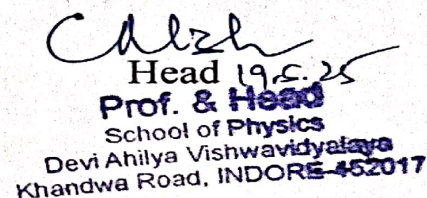 Head 19.5.25
Prof. & Head
School of Physics
Devi Ahilya Vishwavidyalaya
Khandwa Road, INDORE-452017